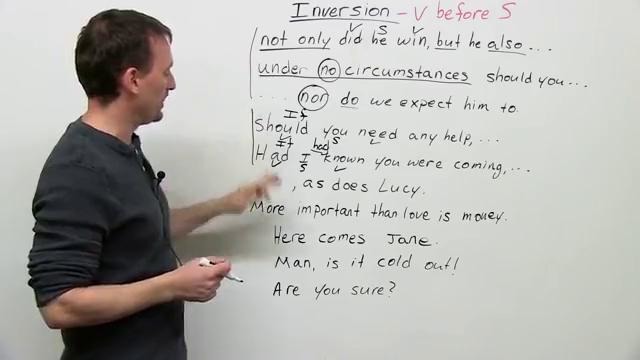 Inversion - V before S
V S V
not only did he win, but he also ...
under no circumstances should you...
.... nor do we expect him to.
If
Should you need any help, ...
If had S
Had I known you were coming, ...
S V
, as does Lucy.
More important than love is money.
Here comes Jane.
Man, is it cold out!
Are you sure?